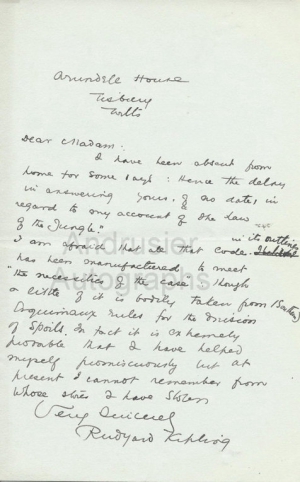 Arundell House
Tisbury
Wilts
Dear Madam:
I have been absent from
home for some days: Hence the delay
in answering yours, of no date, in
regard to my account of "The Law
of the Jungle."
I am afraid that all that code in its outlines
has been manufactured to meet
"the necessities of the case": though
a little of it is bodily taken from (Southern)
Esquimaux rules for the division
of spoils. In fact it is extremely
probable that I have helped
myself promiscuously but at
present I cannot remember from
whose stories I have stolen
Very sincerely
Rudyard Kipling
Andrusier
Autographs